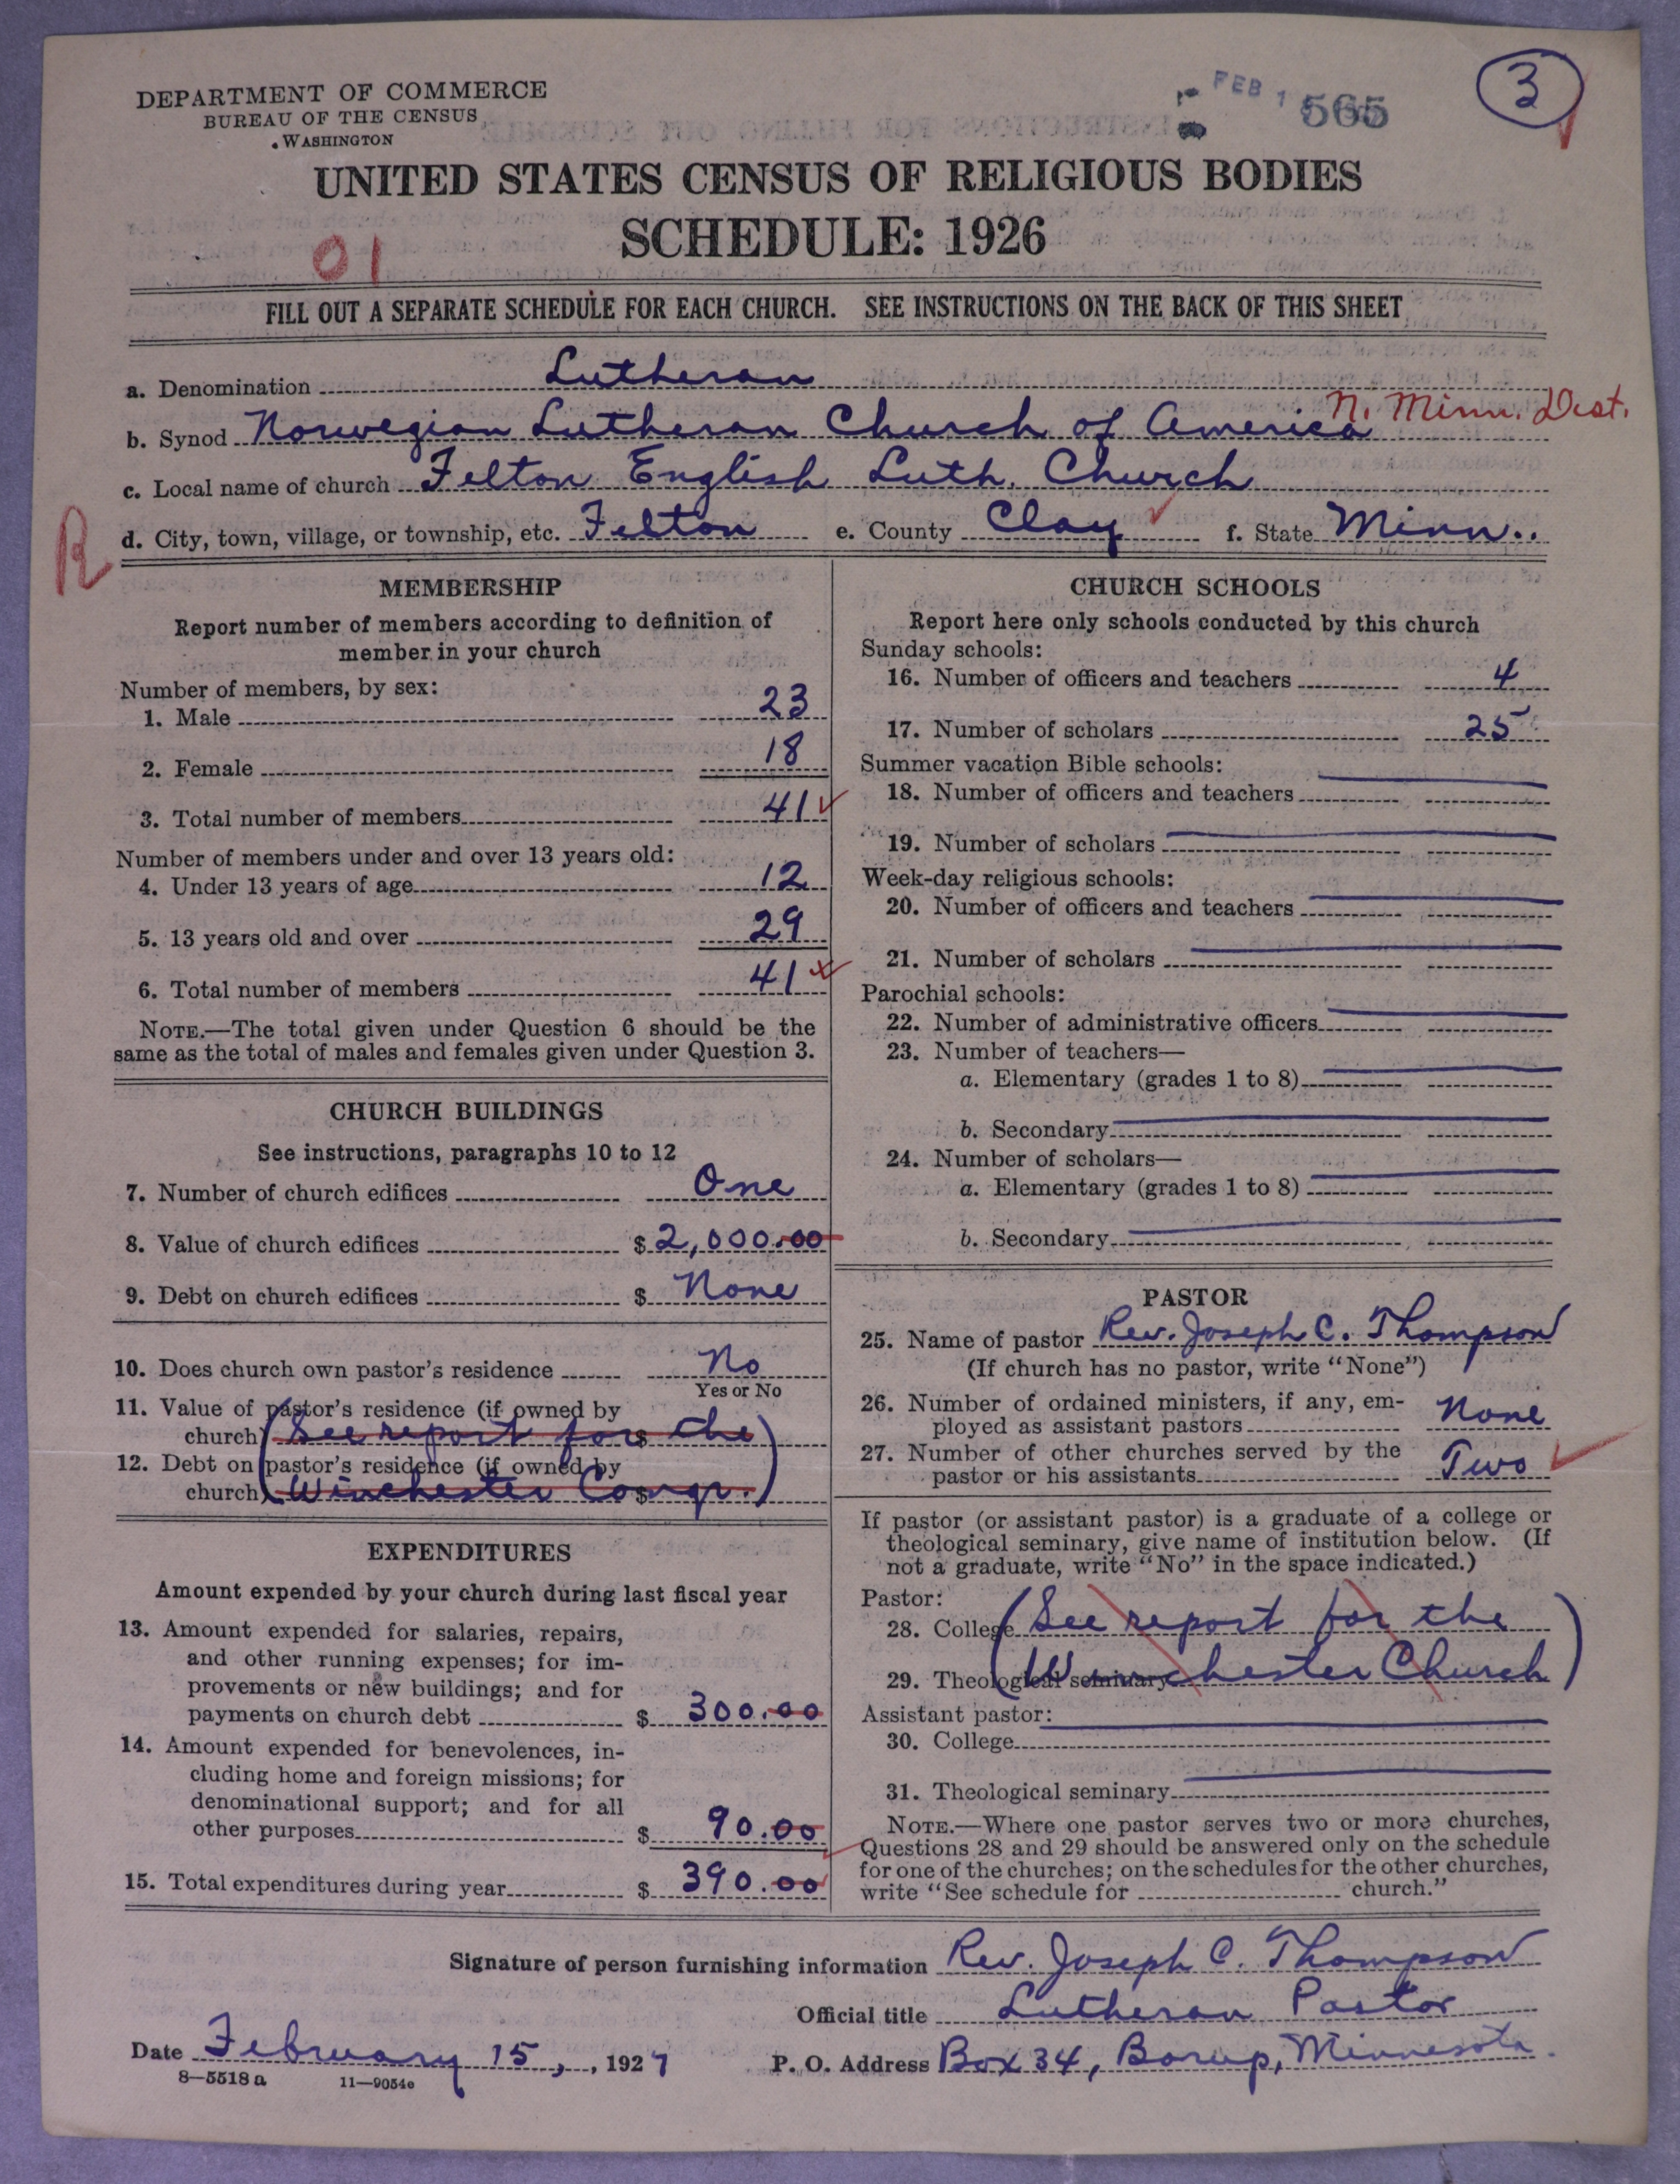 DEPARTMENT OF COMMERCE
BUREAU OF THE CENSUS
WASHINGTON
FEB 1 565
3
UNITED STATES CENSUS OF RELIGIOUS BODIES
SCHEDULE: 1926
01
FILL OUT A SEPARATE SCHEDULE FOR EACH CHURCH. SEE INSTRUCTIONS ON THE BACK OF THIS SHEET
a. Denomination Lutheran
b. Synod Norwegian Lutheran Church of America N. Minn. Dist.
c. Local name of church Felton English Luth. Church
R
d. City, town, village, or township, etc. Felton e. County Clay f. State Minn..
MEMBERSHIP
Report number of members according to definition of
member in your church
Number of members, by sex:
1. Male 23
2. Female 18
3. Total number of members 41
Number of members under and over 13 years old:
4. Under 13 years of age 12
5. 13 years old and over 29
6. Total number of members 41
NOTE.—The total given under Question 6 should be the
same as the total of males and females given under Question 3.
CHURCH BUILDINGS
See instructions, paragraphs 10 to 12
7. Number of church edifices One
8. Value of church edifices $ 2,000.00
9. Debt on church edifices $ None
10. Does church own pastor's residence No
Yes or No
11. Value of pastor's residence (if owned by
church) (See report for $ the
12. Debt on pastor's residence (if owned by
church) Winchester Congr.) $
EXPENDITURES
Amount expended by your church during last fiscal year
13. Amount expended for salaries, repairs,
and other running expenses; for im-
provements or new buildings; and for
payments on church debt $ 300.00
14. Amount expended for benevolences, in-
cluding home and foreign missions; for
denominational support; and for all
other purposes $ 90.00
15. Total expenditures during year $ 390.00
CHURCH SCHOOLS
Report here only schools conducted by this church
Sunday schools:
16. Number of officers and teachers 4
17. Number of scholars 25
Summer vacation Bible schools:
18. Number of officers and teachers
19. Number of scholars
Week-day religious schools:
20. Number of officers and teachers
21. Number of scholars
Parochial schools:
22. Number of administrative officers
23. Number of teachers—
a. Elementary (grades 1 to 8)
b. Secondary
24. Number of scholars—
a. Elementary (grades 1 to 8)
b. Secondary
PASTOR
25. Name of pastor Rev. Joseph C. Thompson
(If church has no pastor, write "None")
26. Number of ordained ministers, if any, em-
ployed as assistant pastors None
27. Number of other churches served by the
pastor or his assistants Two
If pastor (or assistant pastor) is a graduate of a college or
theological seminary, give name of institution below. (If
not a graduate, write "No" in the space indicated.)
Pastor:
28. College (See report for the
29. Theological seminary Winchester Church)
Assistant pastor:
30. College
31. Theological seminary
NOTE.—Where one pastor serves two or more churches,
Questions 28 and 29 should be answered only on the schedule
for one of the churches; on the schedules for the other churches,
write "See schedule for church."
Signature of person furnishing information Rev. Joseph C. Thompson
Official title Lutheran Pastor
Date February 15, , 1927 P. O. Address Box 34, Borup, Minnesota.
8—5518 a 11—9054c